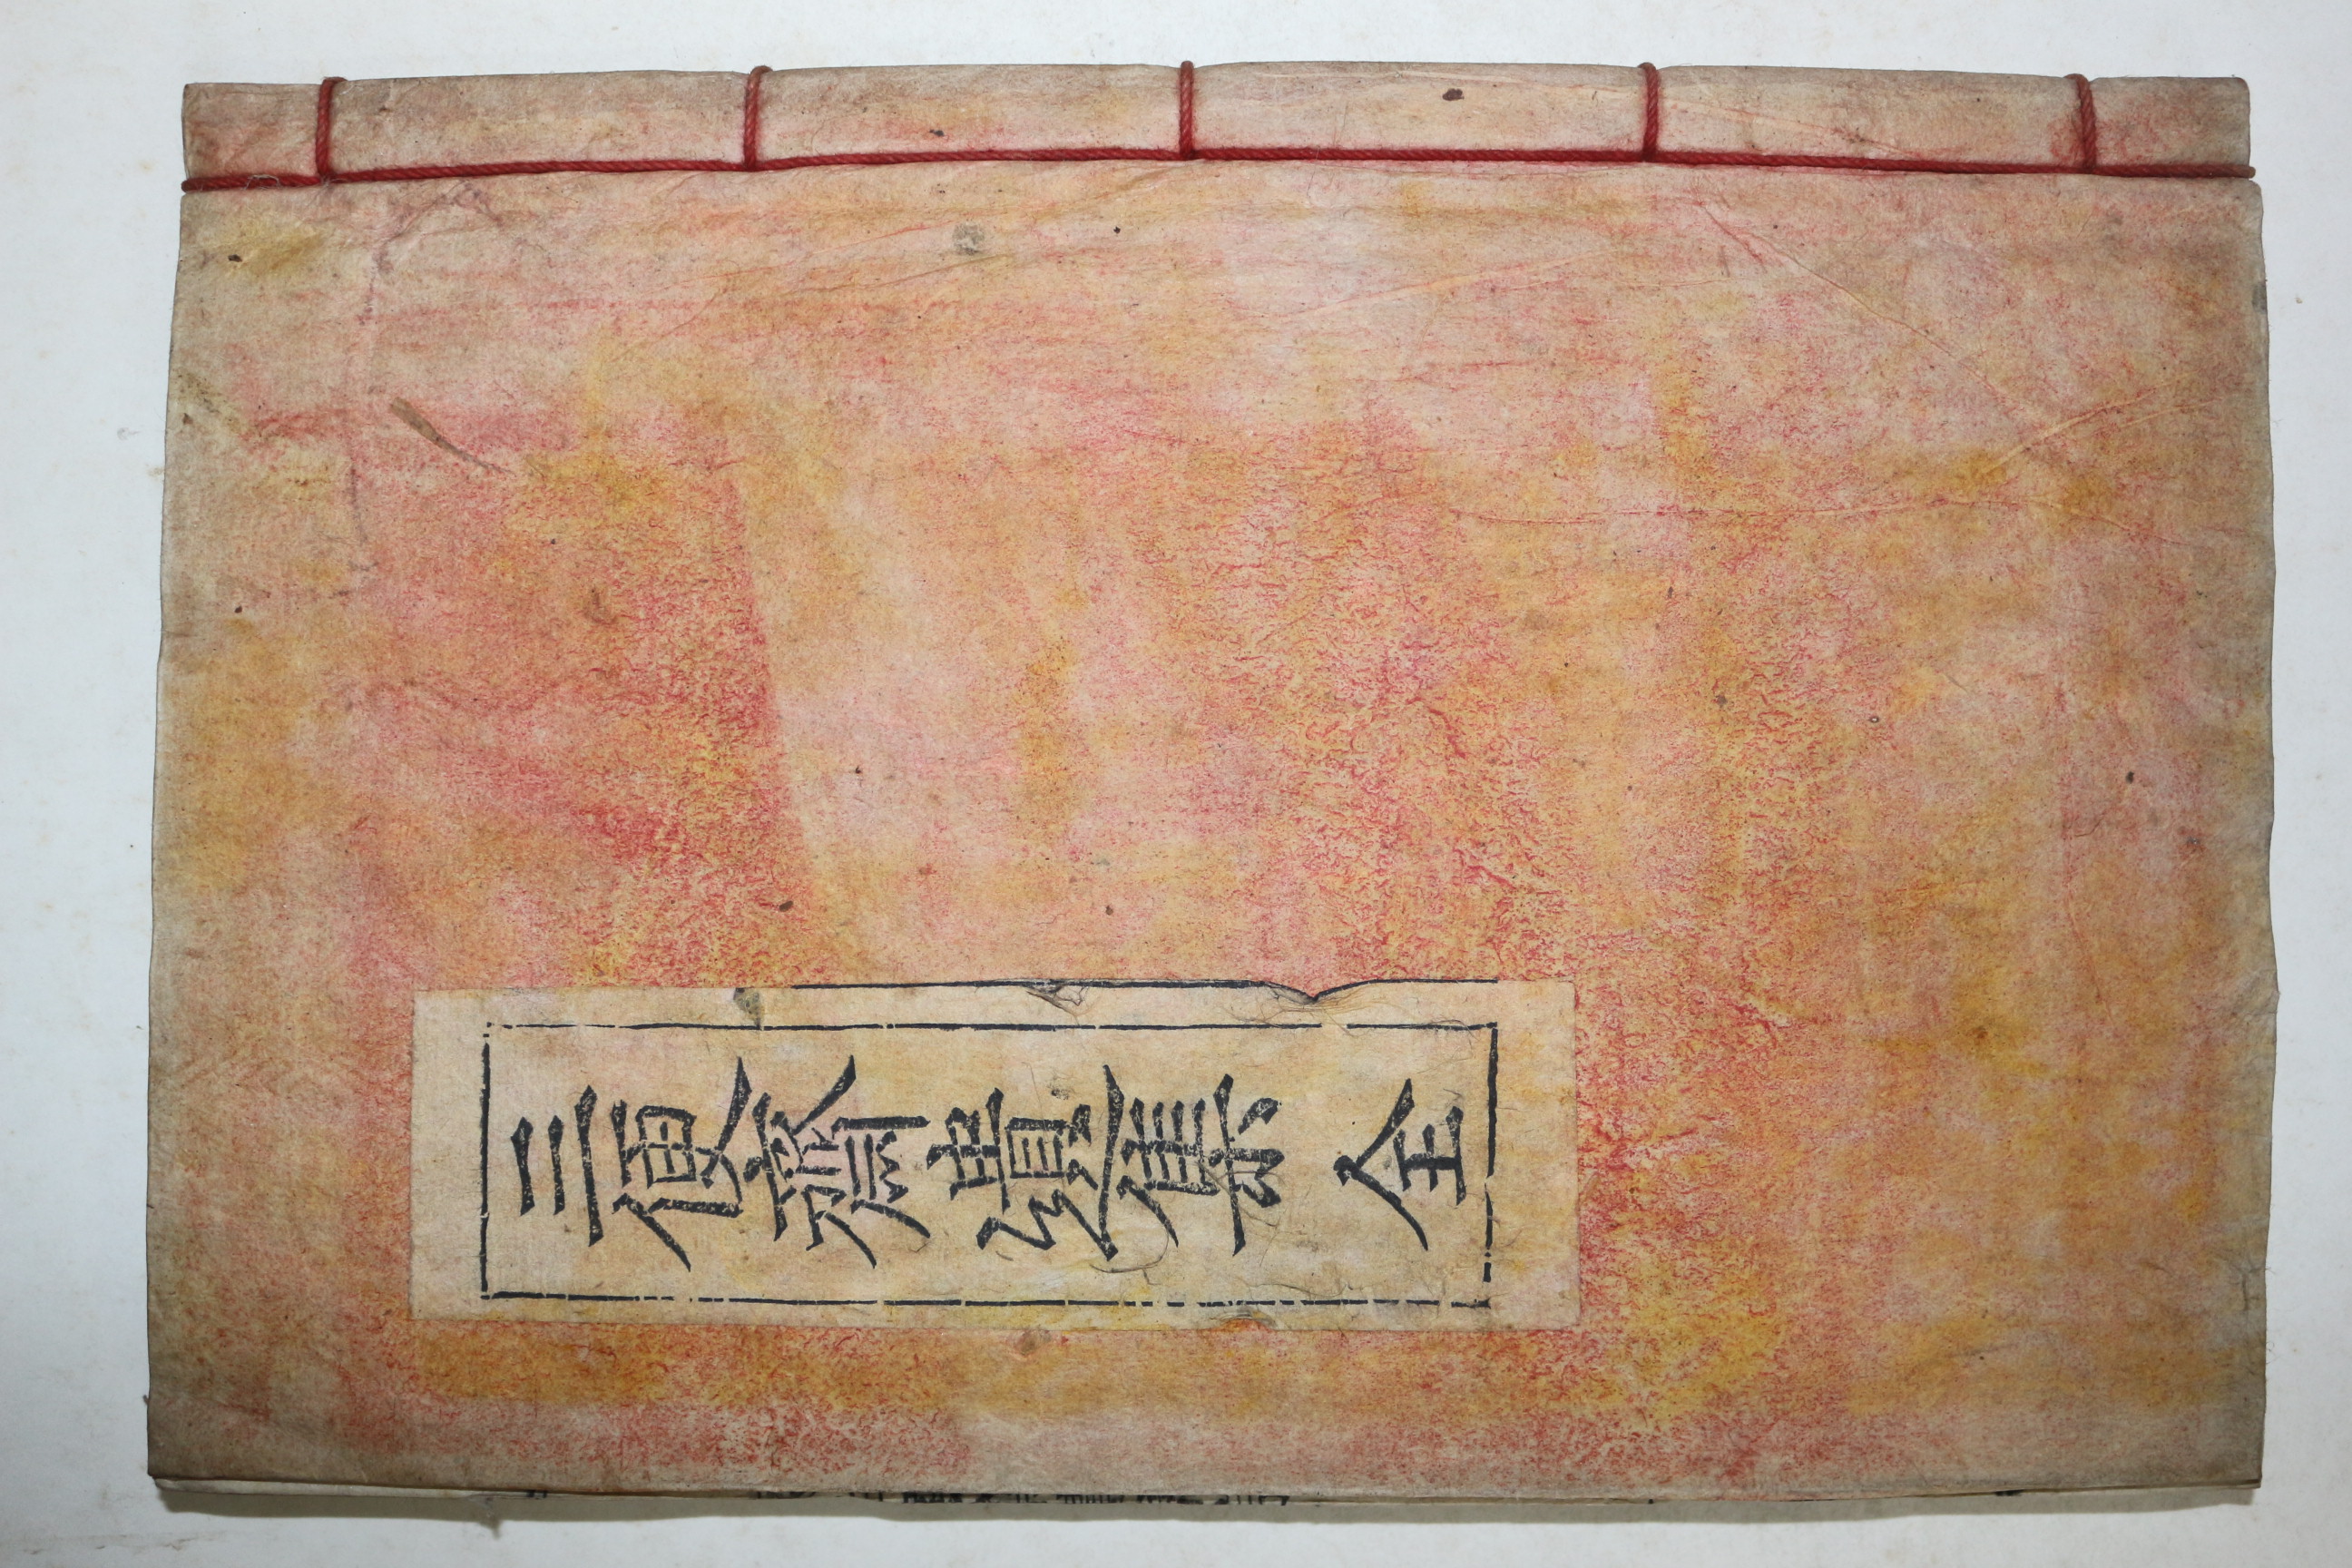 三便齋遺集 全